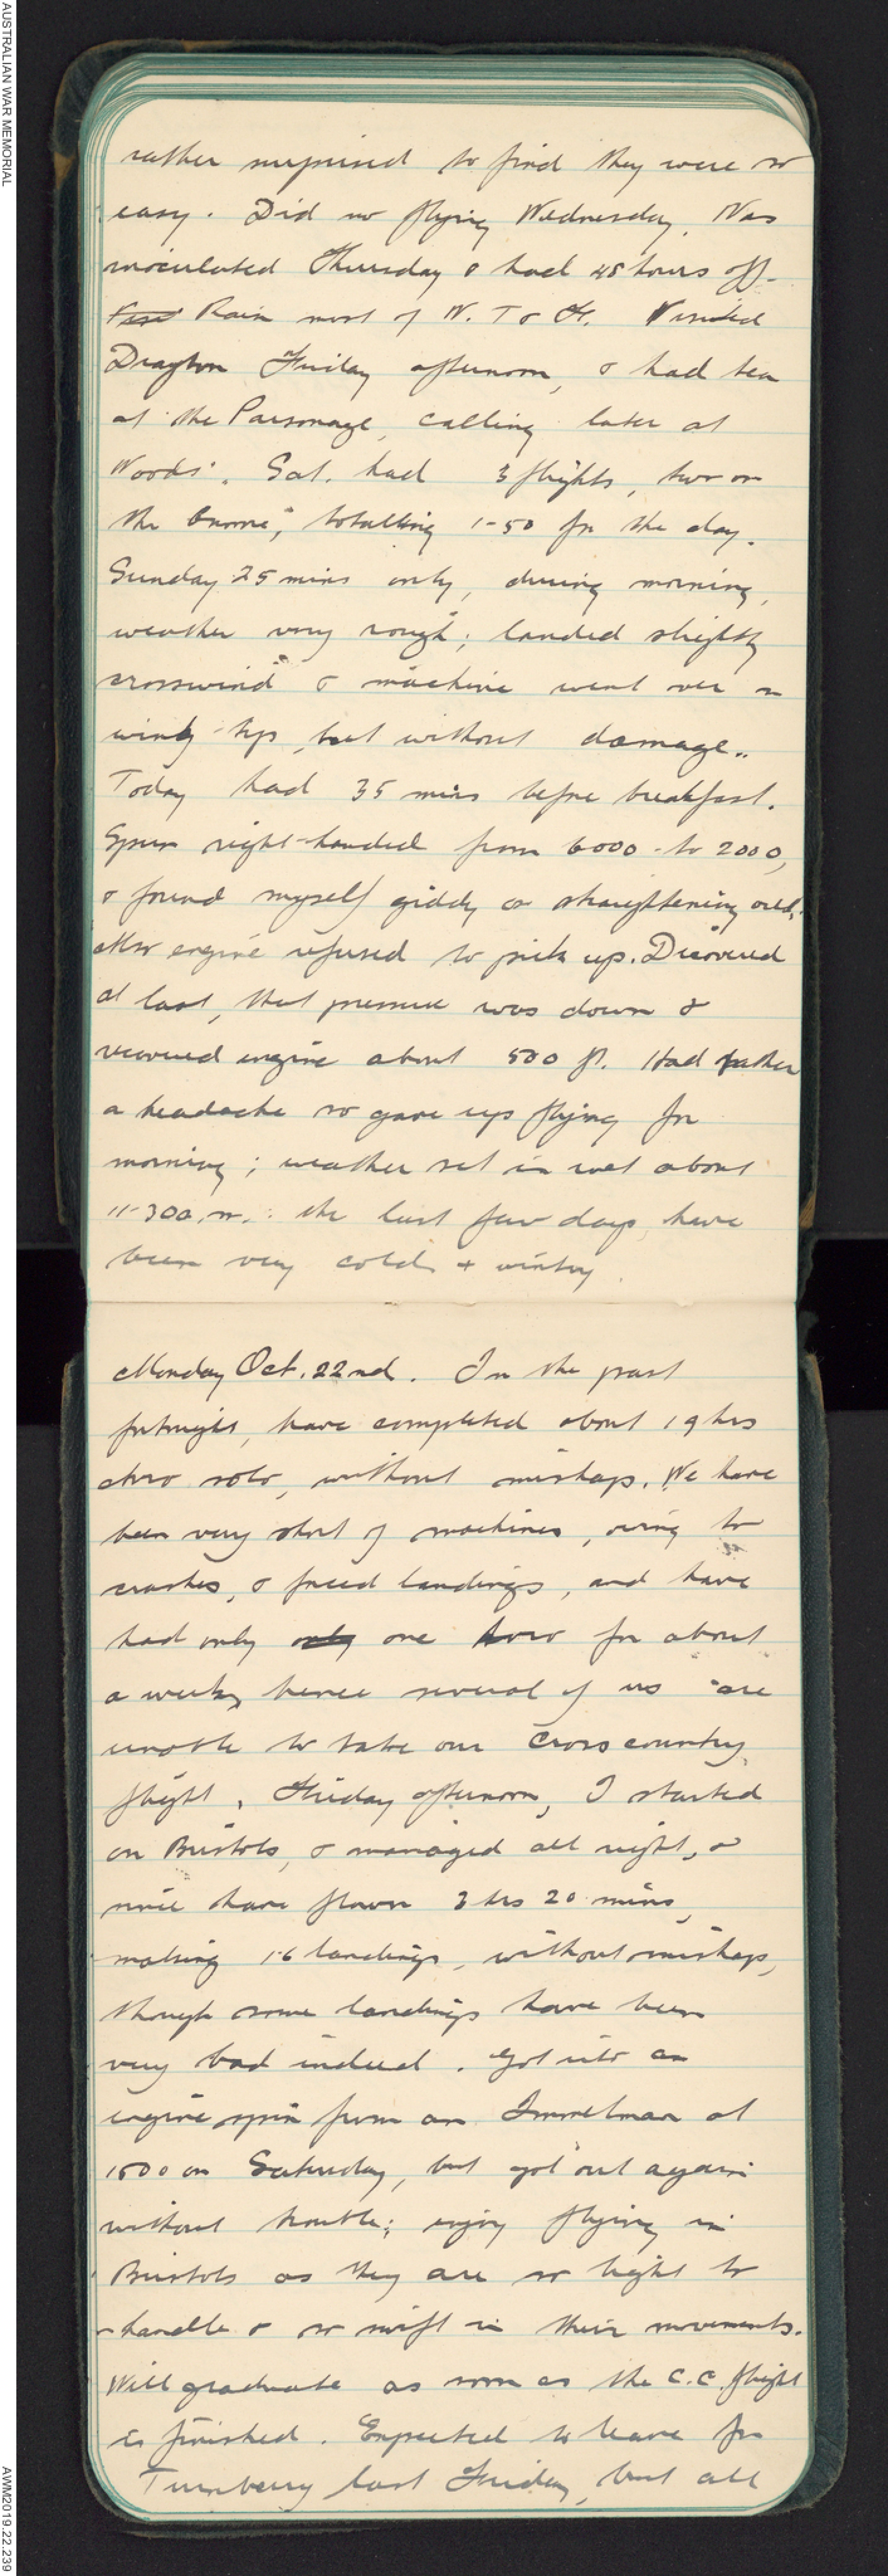 AUSTRALIAN WAR MEMORIAL
rather surprised to find they were so
easy. Did no flying Wednesday. Was
inoculated Thursday & had 48 hours off.
Rain most of W. T & F. Visited
Drayton Friday afternoon, & had tea
at the Parsonage, calling later at
Woods'. Sat. had 3 flights, two on
the totalling 1-50 for the day.
Sunday 25 mins only, during morning,
weather very rough; landed slightly
crosswind & machine went over on
wing tip, but without damage.
Today had 35 mins before breakfast.
Spun right-handed from 6000 to 2000,
& found myself giddy on straightening out.
Also engine refused to pick up. Discovered
at last, that pressure was down &
recovered engine about 500 ft. Had rather
a headache so gave up flying for
morning; weather set in wet about
11-30 a.m. the last few days have
been very cold & wintry.
Monday Oct. 22nd. In the past
fortnight, have completed about 19 hrs
Avro solo, without mishap. We have
been very short of machines, owing to
crashes, & forced landings, and have
had only only one Avro for about
a week, hence several of us are
unable to take our cross country
flight. Friday afternoon, I started
on Bristols, & managed all right, &
since have flown 3 hrs 20 mins,
making 16 landings, without mishap,
though some landings have been
very bad indeed. Got into an
engine spin from an Immelman at
1500 on Saturday, but got out again
without trouble; enjoy flying in
Bristols as they are so light to
handle & so swift in their movements.
Will graduate as soon as the C.C. flight
is finished. Expected to leave for
Turnberry last Friday, but all
AWM2019.22.239